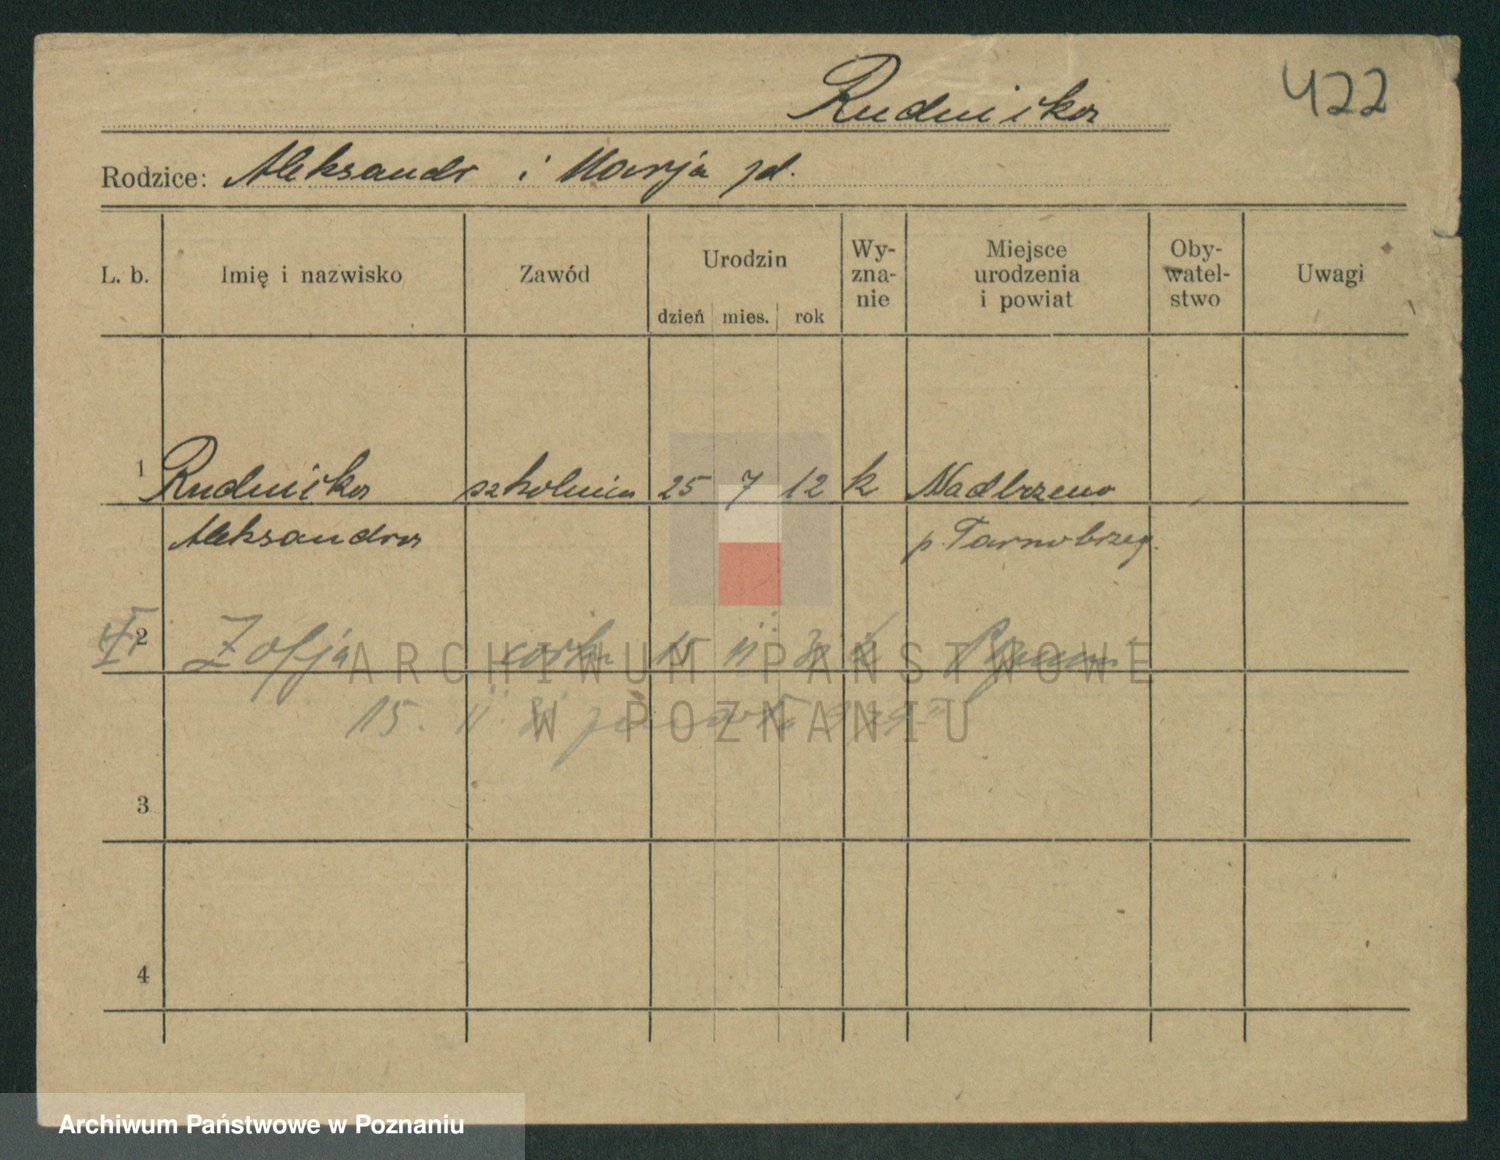 Rudnicka
422
Rodzice: Aleksandr i Marja
L. b. Imię i nazwisko Zawód Urodzin dzień mies. rok Wy-zna-nie Miejsce urodzenia i powiat Oby-watel-stwo Uwagi
1 Rudnicka szkolnica 25 7 12 k Nadbrzezno
Aleksandra p. Tarnobrzeg.
2 Zofja córka 15 II
ARCHIWUM PAŃSTWOWE
15. II
W POZNANIU
3
4
Archiwum Państwowe w Poznaniu